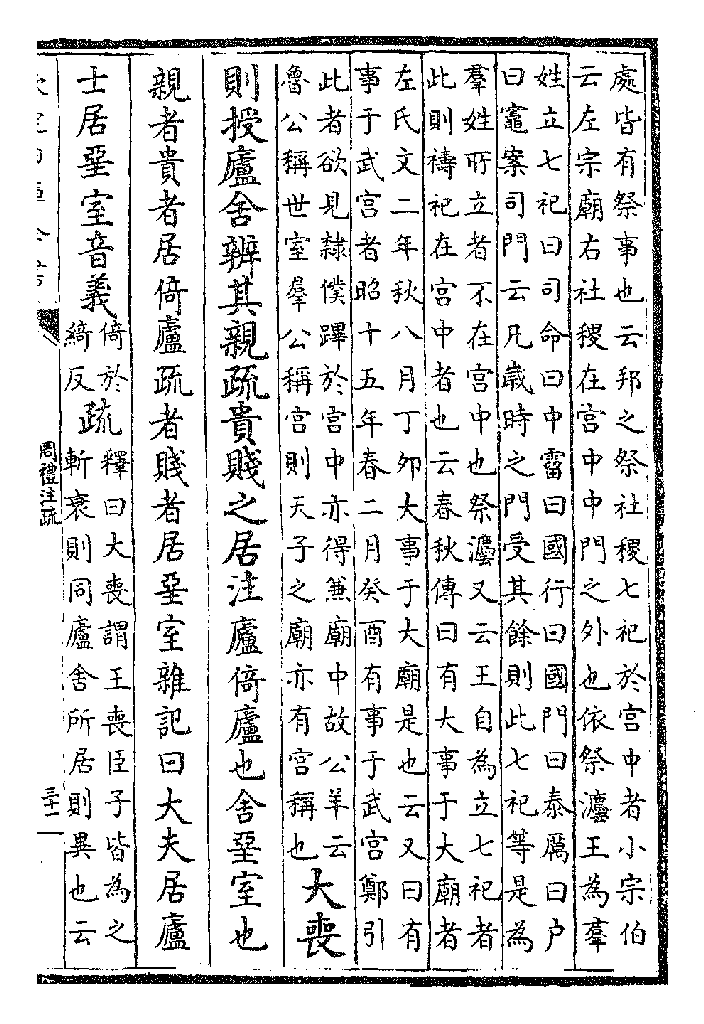 處皆有祭事也云邦之祭社稷七祀於宫中者小宗伯
云左宗廟右社稷在宫中中門之外也依祭灋王為羣
姓立七祀曰司命曰中霤曰國行曰國門曰泰厲曰户
曰竈案司門云凡歲時之門受其餘則此七祀等是為
羣姓所立者不在宫中也祭灋又云王自為立七祀者
此則禱祀在宫中者也云春秋傳曰有大事于大廟者
左氏文二年秋八月丁夘大事于大廟是也云又曰有
事于武宫者昭十五年春二月癸酉有事于武宫鄭引
此者欲見隷僕蹕於宫中亦得兼廟中故公羊云
魯公稱世室羣公稱宫則天子之廟亦有宫稱也
大喪
則授廬舍辨其親疏貴賤之居注廬倚廬也舍堊室也
親者貴者居倚廬疏者賤者居堊室雜記曰大夫居廬
士居堊室音義
倚於
綺反
疏
釋曰大喪謂王喪臣子皆為之
斬衰則同廬舍所居則異也云
周禮注疏
三十二